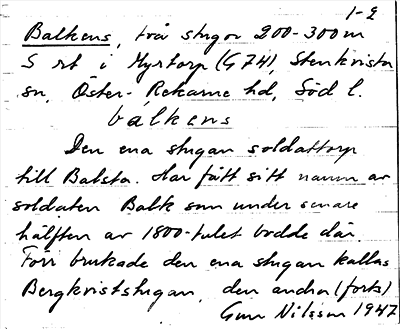 1-2
Balkens, två stugor 200-300 m
S rt i Myrtorp (G 74), Stenkvista
sn, Öster-Rekarne hd, Söd l.
balkens
Den ena stugan soldattorp
till Balsta. Har fått sitt namn av
soldaten Balk som under senare
hälften av 1800-talet bodde där.
Förr brukade den ena stugan kallas
Bergkviststugan, den andra (forts)
Gun Nilsson 1947